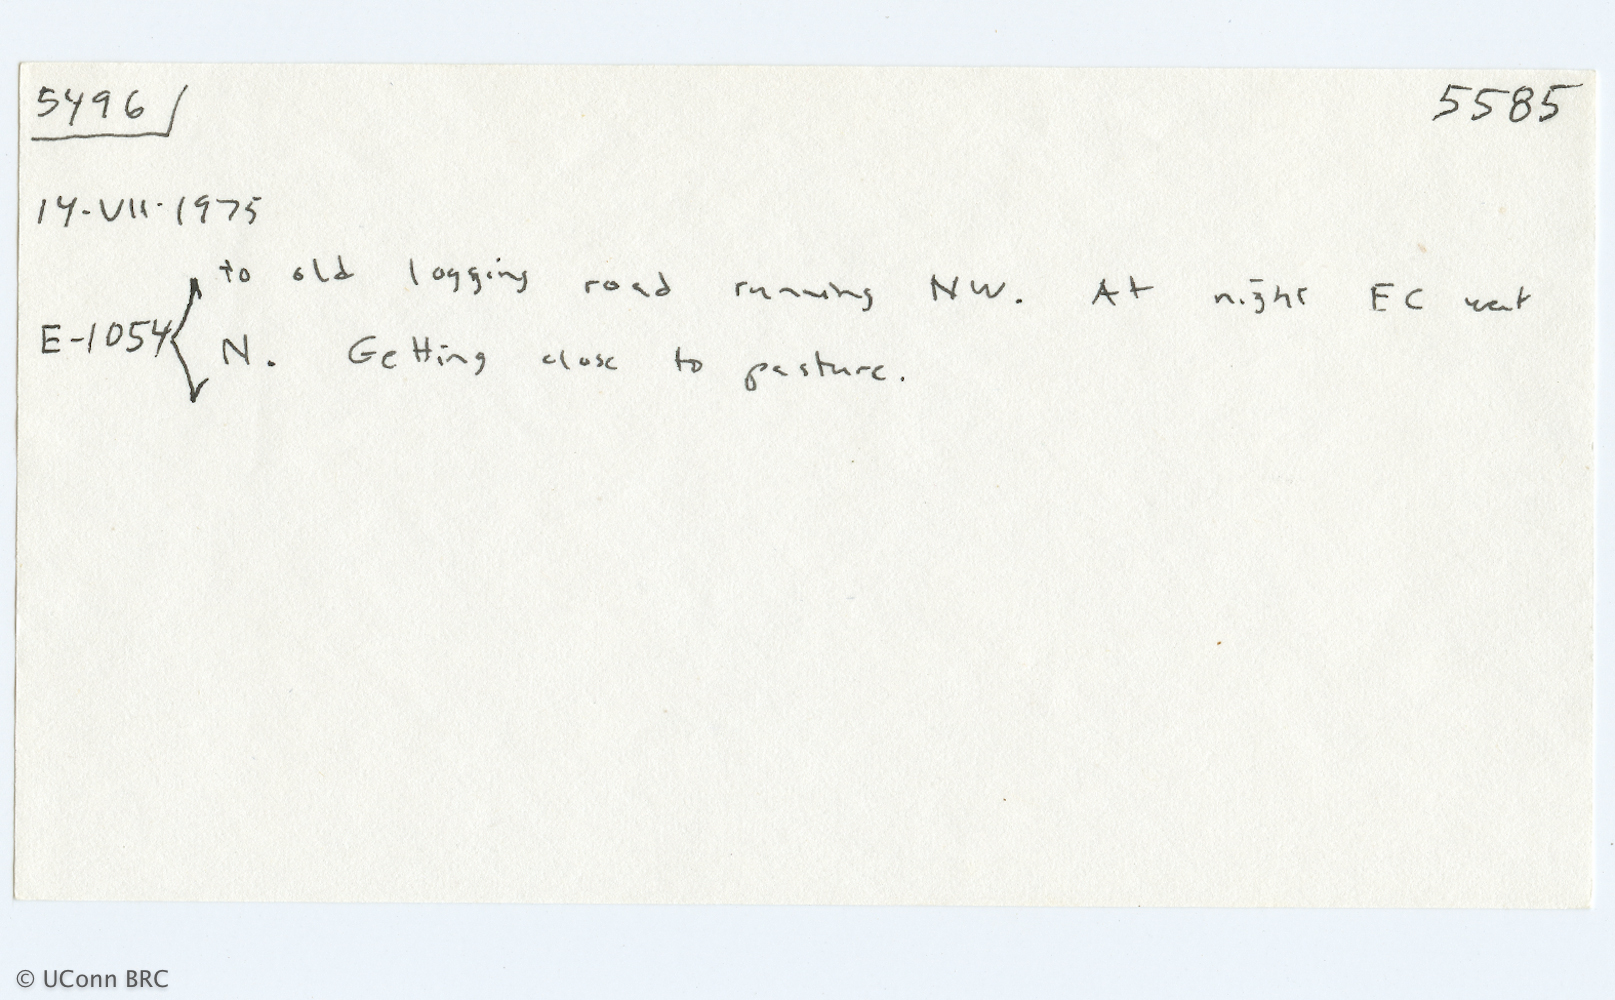 5496 5585
14-VII-1975
to old logging road running NW. At night EC went
E-1054
N. Getting close to pasture.
© UConn BRC